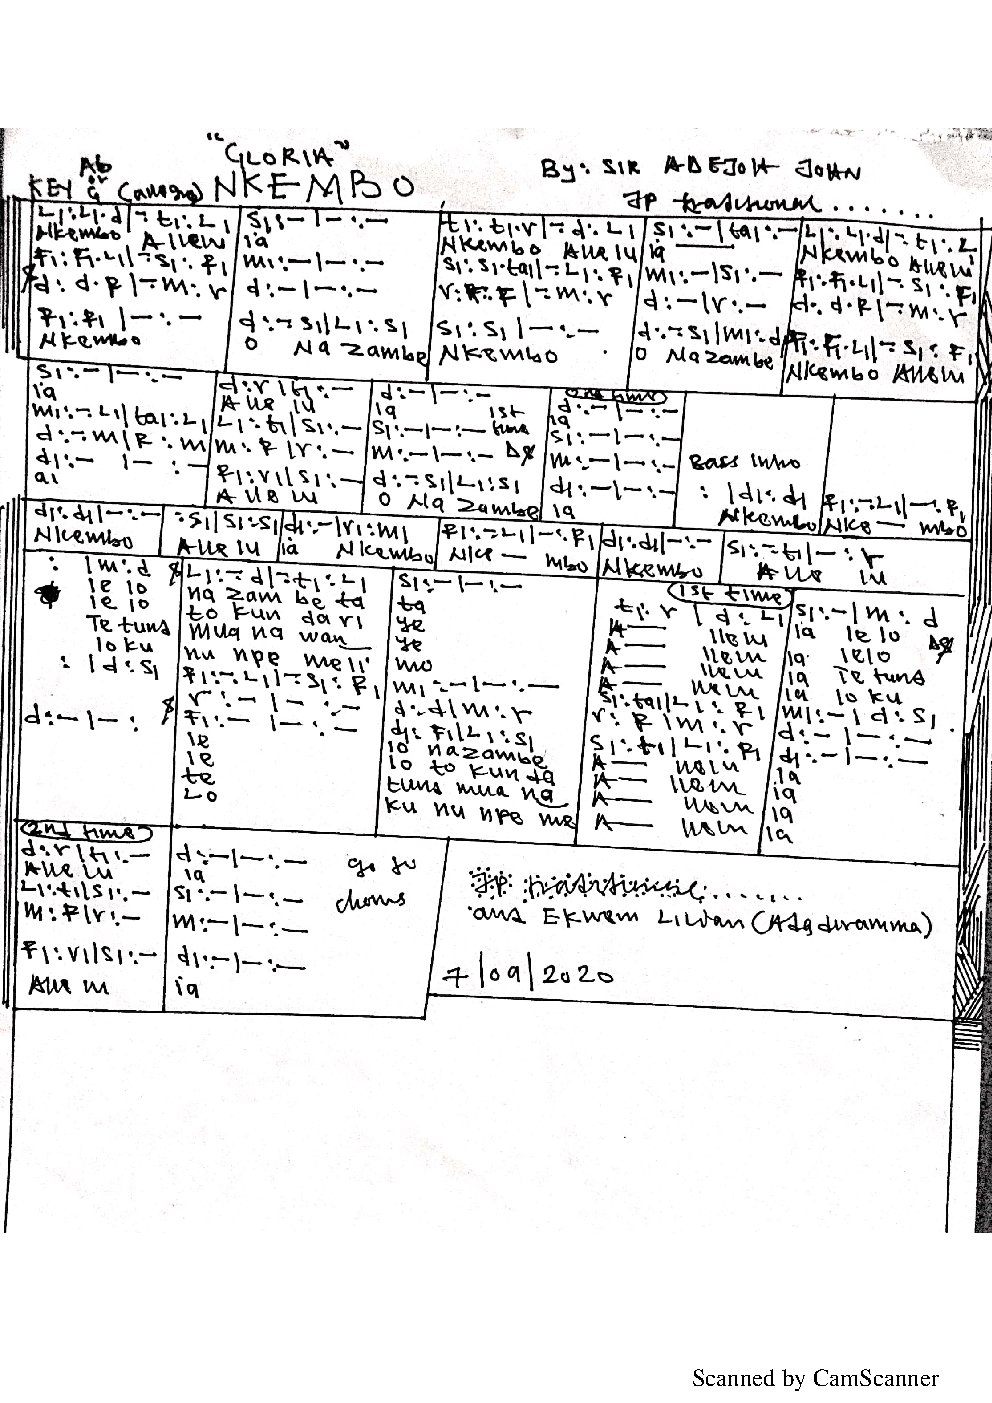 "GLORIA"
Ab
or
KEY G
NKEMBO
By: SIR ADEJOH JOHN
JP traditional .......
L₁:L₁.d|-:t₁:L₁
Nkembo Allelu
F₁:F₁.L₁|-:S₁:F₁
d:d.F|-:m:r
F₁:F₁|-:-
Nkembo
S₁:-|-:-
ia
m₁:-|-:-
d:-|-:-
d:-:S₁|L₁:S₁
O Na Zambe
t₁:t₁.r|-:d:L₁
Nkembo Allelu
S₁:S₁.ta₁|-:L₁:F₁
r:F.F|-:m:r
S₁:S₁|-:-
Nkembo
S₁:-|ta₁:-
ia
m₁:-|S₁:-
d:-|r:-
d:-:S₁|m₁:d
O Na Zambe
L₁:L₁.d|-:t₁:L
Nkembo Allelu
F₁:F₁.L₁|-:S₁:F₁
d:d.F|-:m:r
F₁:F₁.L₁|-:S₁:F₁
Nkembo Allelu
S₁:-|-:-
ia
m₁:-:L₁|ta₁:L₁
d:-:m|F:m
d₁:-|-:-
d:r|t₁:-
Alle lu
L₁:t₁|S₁:-
m:F|r:-
F₁:r₁|S₁:-
Alle lu
d:-|-:-
ia 1st
S₁:-|-:- time
m:-|-:- D$
d:-:S₁|L₁:S₁
O Na Zambe
d:-|-:-
ia
S₁:-|-:-
m:-|-:-
d₁:-|-:-
ia
Bass Intro
:|d₁:d₁
Nkembo
F₁:-:L₁|-:F₁
Nke — mbo
d₁:d₁|-:-
Nkembo
-:S₁|S₁:S₁
Alle lu
d₁:-|r₁:m₁
ia Nkembo
F₁:-:L₁|-:F₁
Nke — mbo
d₁:d₁|-:-
Nkembo
S₁:-:t₁|-:r
Alle lu
:|m:d
le lo
le lo
Te tuns
lo ku
:|d:S₁
d:-|-:
L₁:-:d|-:t₁:L₁
na zam be ta
to kun da ri
mua na wan
nu npe meli
F₁:-:L₁|-:S₁:F₁
r:-|-:-
F₁:-|-:-
le
le
te
Lo
S₁:-|-:-
ta
ye
ye
mo
m₁:-|-:-
d:d|m:r
d₁:F₁|L₁:S₁
lo nazambe
lo to kun da
tuns mua na
ku nu npe me
1st time
t₁:r|d:L₁
A— llelu
A— llelu
A— llelu
A— llelu
S₁:ta₁|L₁:F₁
r:F|m:r
S₁:t₁|L₁:F₁
A— llelu
A— llelu
A— llelu
A— llelu
S₁:-|m:d
ia lelo D$
ia lelo
ia Te tuns
ia lo ku
m₁:-|d:S₁
d:-|-:-
d₁:-|-:-
ia
ia
ia
ia
2nd time
d:r|t₁:-
Alle lu
L₁:t₁|S₁:-
m:F|r:-
F₁:r₁|S₁:-
Alle lu
d:-|-:-
ia
S₁:-|-:-
m:-|-:-
d₁:-|-:-
ia
go to
chorus
and Ekwem Lilian (Adaduramma)
7/09/2020
Scanned by CamScanner